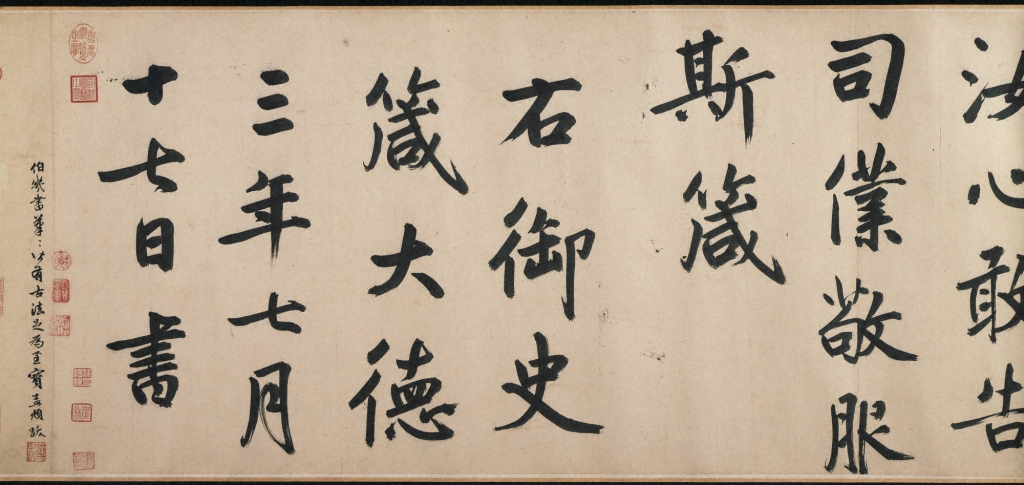 汝心敢告
司僕敬服
斯箴
右御史
箴大德
三年七月
十七日書
伯幾書筆〻皆有古法足為至寶孟頫跋